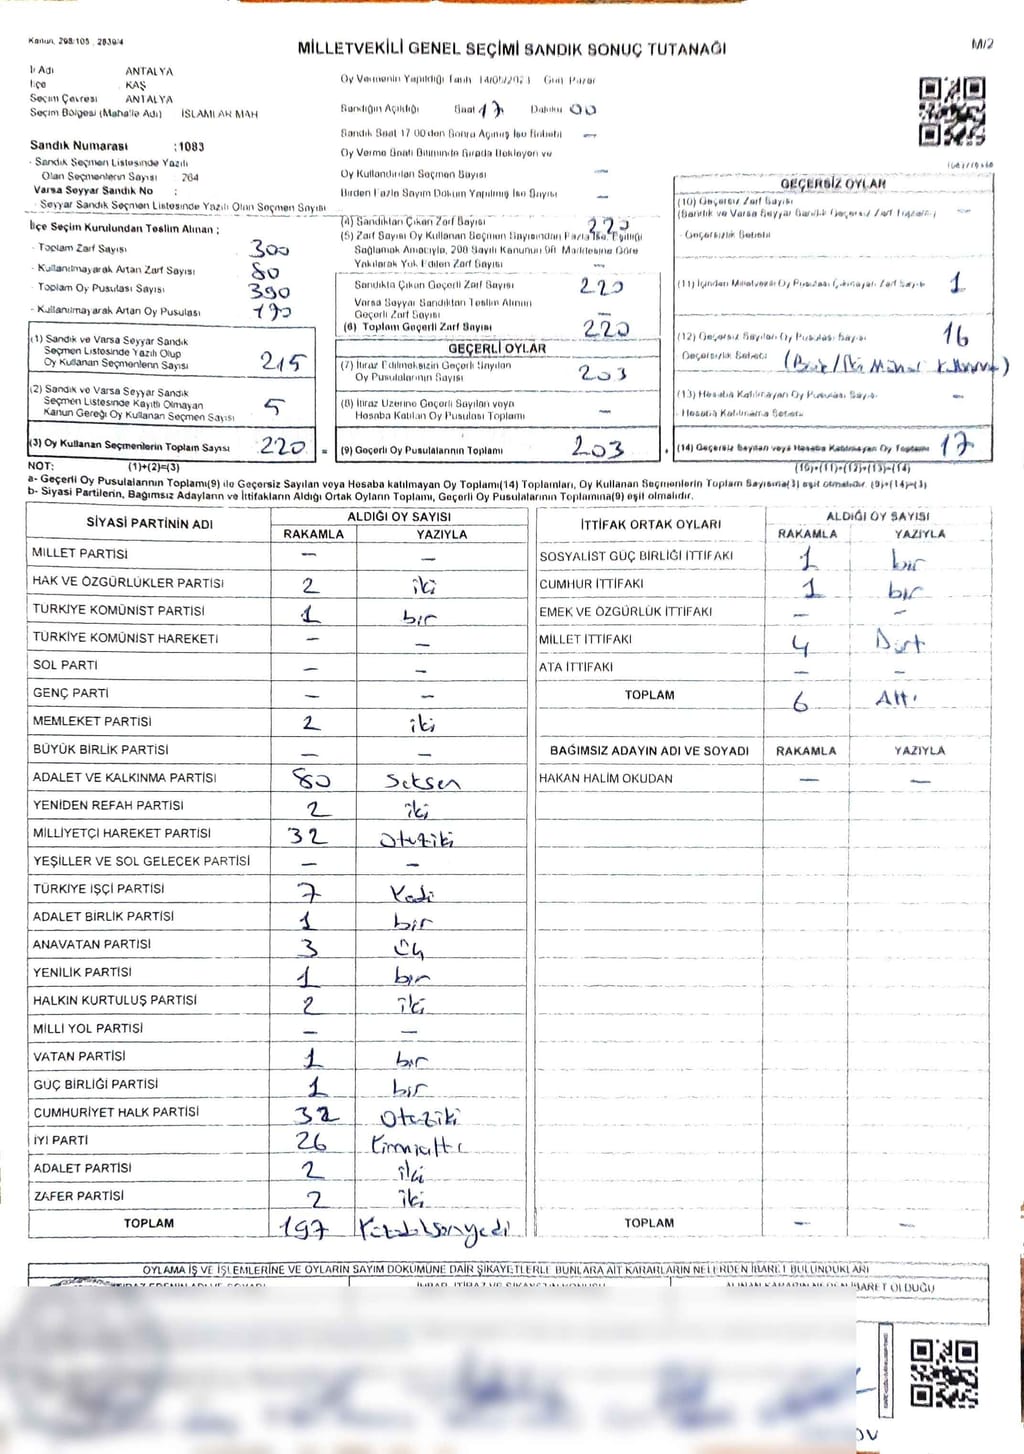 Kanun, 298/105 , 2839/4
MİLLETVEKİLİ GENEL SEÇİMİ SANDIK SONUÇ TUTANAĞI
M/2
İl Adı ANTALYA
İlçe : KAŞ
Seçim Çevresi ANTALYA
Seçim Bölgesi (Mahalle Adı) İSLAMLAR MAH
Sandık Numarası :1083
- Sandık Seçmen Listesinde Yazılı
Olan Seçmenlerin Sayısı 264
Varsa Seyyar Sandık No :
- Seyyar Sandık Seçmen Listesinde Yazılı Olan Seçmen Sayısı
İlçe Seçim Kurulundan Teslim Alınan :
- Toplam Zarf Sayısı 300
- Kullanılmayarak Artan Zarf Sayısı 80
- Toplam Oy Pusulası Sayısı 390
- Kullanılmayarak Artan Oy Pusulası 170
(1) Sandık ve Varsa Seyyar Sandık
Seçmen Listesinde Yazılı Olup
Oy Kullanan Seçmenlerin Sayısı 215
(2) Sandık ve Varsa Seyyar Sandık
Seçmen Listesinde Kayıtlı Olmayan
Kanun Gereği Oy Kullanan Seçmen Sayısı 5
(3) Oy Kullanan Seçmenlerin Toplam Sayısı 220 =
Oy Vermenin Yapıldığı Tarih 14/05/2023 Gün Pazar
Sandığın Açıldığı Saat 17 Dakika 00
Sandık Saat 17 00 den Sonra Açılmış İse Sebebi —
Oy Verme Saati Bitiminde Sırada Bekleyen ve
Oy Kullandırılan Seçmen Sayısı —
Birden Fazla Sayım Döküm Yapılmış İse Sayısı —
(4) Sandıktan Çıkan Zarf Sayısı 220
(5) Zarf Sayısı Oy Kullanan Seçmen Sayısından Fazla İse, Eşitliği
Sağlamak Amacıyla, 298 Sayılı Kanunun 98. Maddesine Göre
Yakılarak Yok Edilen Zarf Sayısı —
Sandıkta Çıkan Geçerli Zarf Sayısı 220
Varsa Seyyar Sandıktan Teslim Alınan
Geçerli Zarf Sayısı —
(6) Toplam Geçerli Zarf Sayısı 220
GEÇERLİ OYLAR
(7) İtiraz Edilmeksizin Geçerli Sayılan
Oy Pusulalarının Sayısı 203
(8) İtiraz Üzerine Geçerli Sayılan veya
Hesaba Katılan Oy Pusulası Toplamı —
(9) Geçerli Oy Pusulalarının Toplamı 203 +
GEÇERSİZ OYLAR
(10) Geçersiz Zarf Sayısı
(Sandık ve Varsa Seyyar Sandık Geçersiz Zarf Toplamı) —
- Geçersizlik Sebebi
(11) İçinden Milletvekili Oy Pusulası Çıkmayan Zarf Sayısı 1
(12) Geçersiz Sayılan Oy Pusulası Sayısı 16
Geçersizlik Sebebi
(13) Hesaba Katılmayan Oy Pusulası Sayısı —
- Hesaba Katılmama Sebebi
(14) Geçersiz Sayılan veya Hesaba Katılmayan Oy Toplamı 17
NOT: (1)+(2)=(3) (10)+(11)+(12)+(13)=(14)
a- Geçerli Oy Pusulalarının Toplamı(9) ile Geçersiz Sayılan veya Hesaba katılmayan Oy Toplamı(14) Toplamları, Oy Kullanan Seçmenlerin Toplam Sayısına(3) eşit olmalıdır. (9)+(14)=(3)
b- Siyasi Partilerin, Bağımsız Adayların ve İttifakların Aldığı Ortak Oyların Toplamı, Geçerli Oy Pusulalarının Toplamına(9) eşit olmalıdır.
SİYASİ PARTİNİN ADI ALDIĞI OY SAYISI
RAKAMLA YAZIYLA
MİLLET PARTİSİ — —
HAK VE ÖZGÜRLÜKLER PARTİSİ 2 iki
TÜRKİYE KOMÜNİST PARTİSİ 1 bir
TÜRKİYE KOMÜNİST HAREKETİ — —
SOL PARTİ — —
GENÇ PARTİ — —
MEMLEKET PARTİSİ 2 iki
BÜYÜK BİRLİK PARTİSİ — —
ADALET VE KALKINMA PARTİSİ 80 Seksen
YENİDEN REFAH PARTİSİ 2 iki
MİLLİYETÇİ HAREKET PARTİSİ 32 Otuziki
YEŞİLLER VE SOL GELECEK PARTİSİ — —
TÜRKİYE İŞÇİ PARTİSİ 7 Yedi
ADALET BİRLİK PARTİSİ 1 bir
ANAVATAN PARTİSİ 3 Üç
YENİLİK PARTİSİ 1 bir
HALKIN KURTULUŞ PARTİSİ 2 iki
MİLLİ YOL PARTİSİ — —
VATAN PARTİSİ 1 bir
GÜÇ BİRLİĞİ PARTİSİ 1 bir
CUMHURİYET HALK PARTİSİ 32 Otuziki
İYİ PARTİ 26 Yirmialtı
ADALET PARTİSİ 2 iki
ZAFER PARTİSİ 2 iki
TOPLAM 197
İTTİFAK ORTAK OYLARI ALDIĞI OY SAYISI
RAKAMLA YAZIYLA
SOSYALİST GÜÇ BİRLİĞİ İTTİFAKI 1 bir
CUMHUR İTTİFAKI 1 bir
EMEK VE ÖZGÜRLÜK İTTİFAKI — —
MİLLET İTTİFAKI 4 Dört
ATA İTTİFAKI — —
TOPLAM 6 Altı
BAĞIMSIZ ADAYIN ADI VE SOYADI RAKAMLA YAZIYLA
HAKAN HALİM OKUDAN — —
TOPLAM — —
OYLAMA İŞ VE İŞLEMLERİNE VE OYLARIN SAYIM DÖKÜMÜNE DAİR ŞİKAYETLERLE BUNLARA AİT KARARLARIN NELERDEN İBARET BULUNDUKLARI